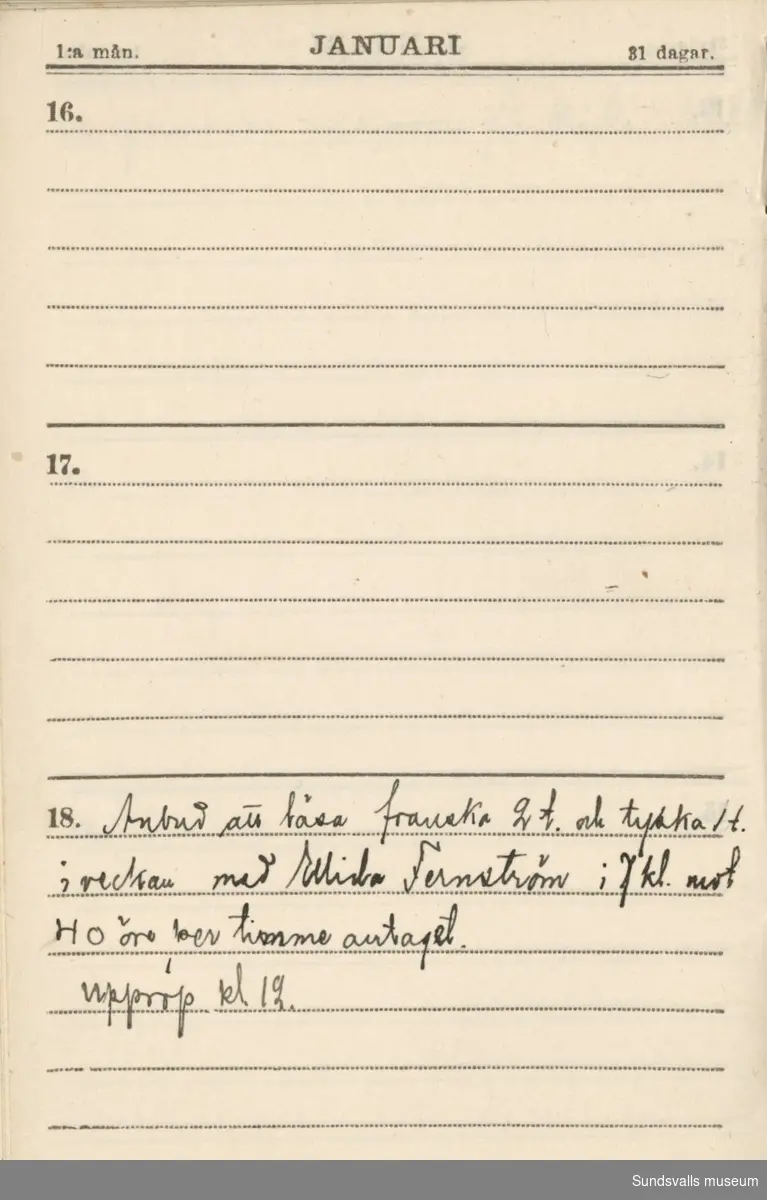 1:a mån. JANUARI 31 dagar.
16.
17.
18. Anbud att läsa franska 2 t. och tyska 1 t.
i veckan med Ellida Fernström i 7 kl. mot
40 öre per timme antaget.
Upprop kl. 12.
Sundsvalls museum